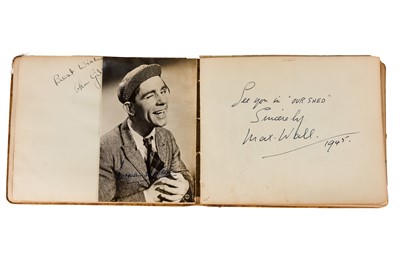 Best Wishes
See you in "OUR SHED"
Sincerely
Max Wall
1945.